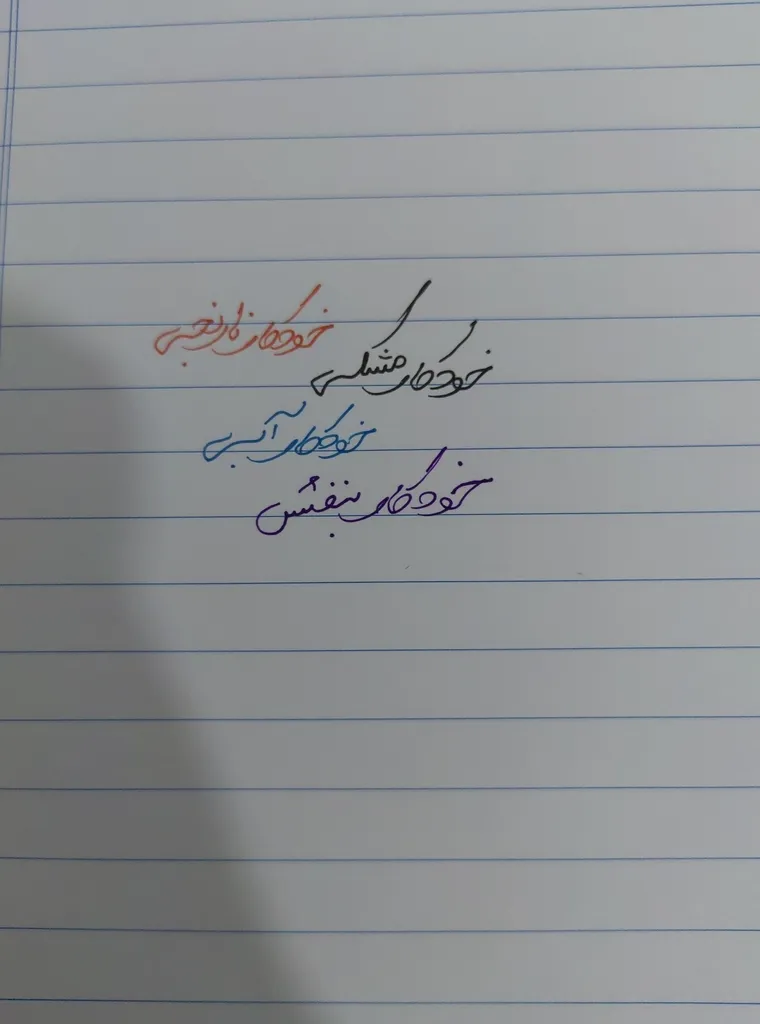 خودکار نارنجی
خودکار مشکی
خودکار آبی
خودکار بنفش